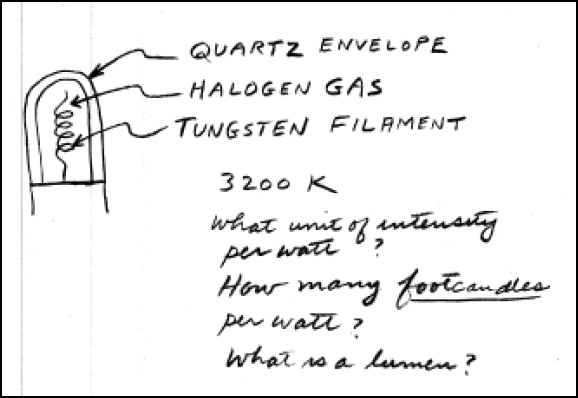 QUARTZ ENVELOPE
HALOGEN GAS
TUNGSTEN FILAMENT
3200 K
What unit of intensity
per watt ?
How many footcandles
per watt ?
What is a lumen ?